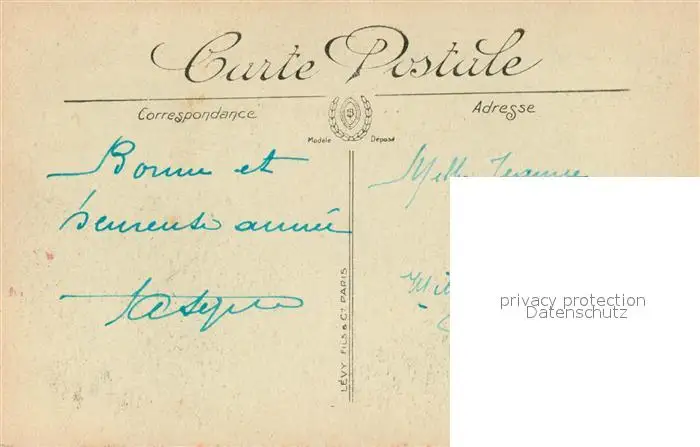 Carte Postale
Correspondance
Adresse
Modèle Déposé
Bonne et
heureuse année
LÉVY FILS & Cie PARIS
Melle Jeanne
privacy protection
Datenschutz